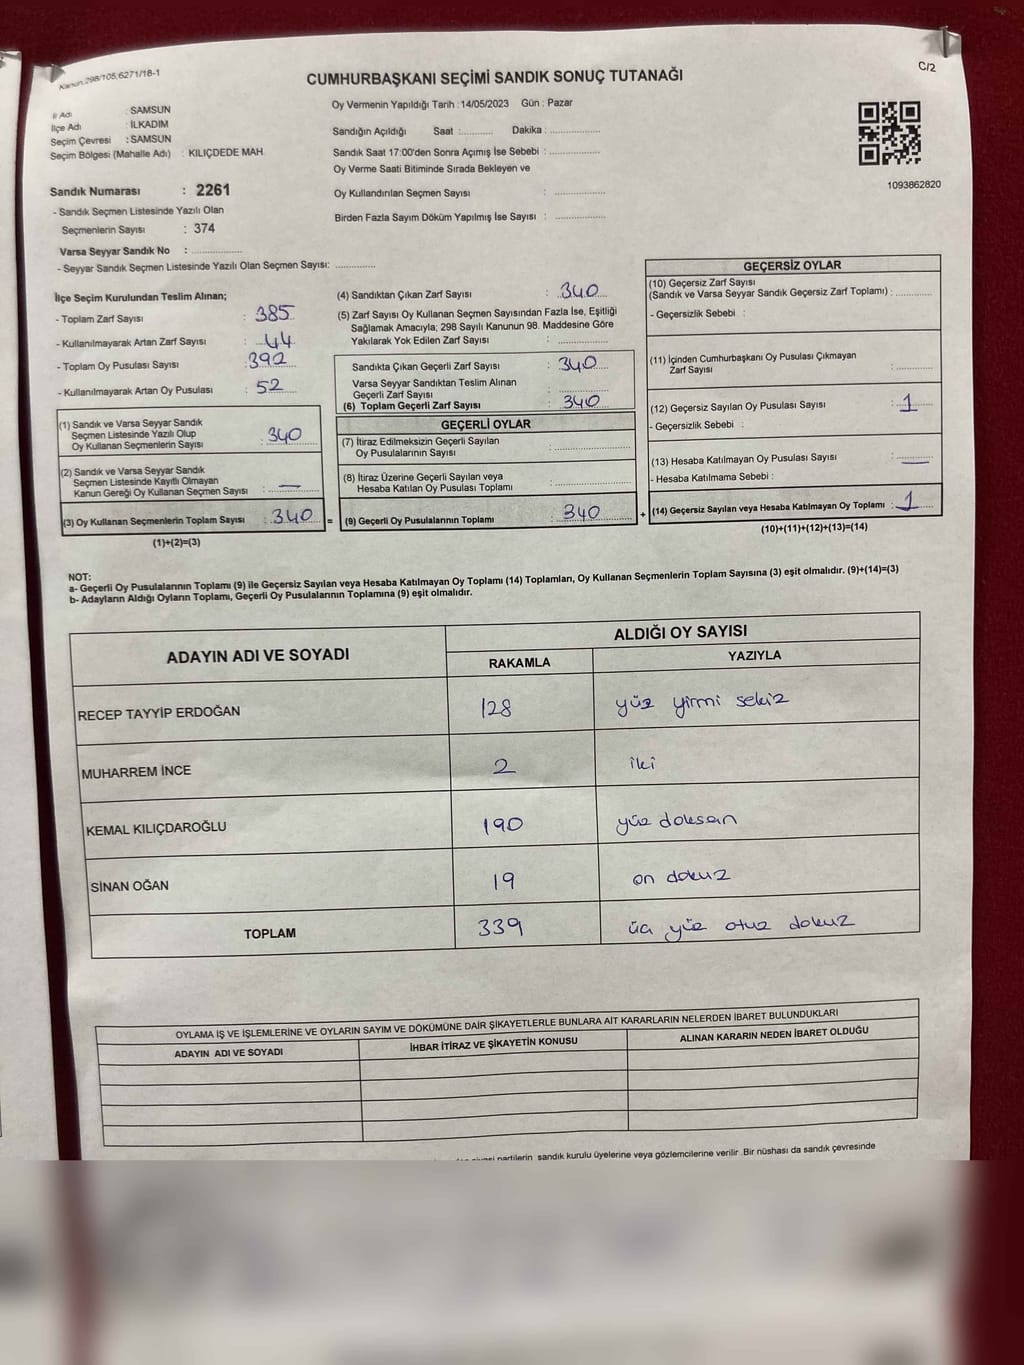 Kanun:298/105;6271/18-1
CUMHURBAŞKANI SEÇİMİ SANDIK SONUÇ TUTANAĞI
C/2
İl Adı : SAMSUN
İlçe Adı : İLKADIM
Seçim Çevresi : SAMSUN
Seçim Bölgesi (Mahalle Adı) : KILIÇDEDE MAH.
Sandık Numarası : 2261
- Sandık Seçmen Listesinde Yazılı Olan
Seçmenlerin Sayısı : 374
Varsa Seyyar Sandık No : ................
- Seyyar Sandık Seçmen Listesinde Yazılı Olan Seçmen Sayısı: ............
Oy Vermenin Yapıldığı Tarih : 14/05/2023 Gün : Pazar
Sandığın Açıldığı Saat :........... Dakika : ................
Sandık Saat 17:00'den Sonra Açımış İse Sebebi : ................
Oy Verme Saati Bitiminde Sırada Bekleyen ve
Oy Kullandırılan Seçmen Sayısı : ................
Birden Fazla Sayım Döküm Yapılmış İse Sayısı : ................
1093862820
İlçe Seçim Kurulundan Teslim Alınan;
- Toplam Zarf Sayısı : 385
- Kullanılmayarak Artan Zarf Sayısı : 44
- Toplam Oy Pusulası Sayısı : 392
- Kullanılmayarak Artan Oy Pusulası : 52
(1) Sandık ve Varsa Seyyar Sandık
Seçmen Listesinde Yazılı Olup
Oy Kullanan Seçmenlerin Sayısı : 340
(2) Sandık ve Varsa Seyyar Sandık
Seçmen Listesinde Kayıtlı Olmayan
Kanun Gereği Oy Kullanan Seçmen Sayısı : —
(3) Oy Kullanan Seçmenlerin Toplam Sayısı : 340 =
(1)+(2)=(3)
(4) Sandıktan Çıkan Zarf Sayısı : 340
(5) Zarf Sayısı Oy Kullanan Seçmen Sayısından Fazla İse, Eşitliği
Sağlamak Amacıyla; 298 Sayılı Kanunun 98. Maddesine Göre
Yakılarak Yok Edilen Zarf Sayısı : ................
Sandıkta Çıkan Geçerli Zarf Sayısı : 340
Varsa Seyyar Sandıktan Teslim Alınan
Geçerli Zarf Sayısı : ................
(6) Toplam Geçerli Zarf Sayısı : 340
GEÇERLİ OYLAR
(7) İtiraz Edilmeksizin Geçerli Sayılan
Oy Pusulalarının Sayısı : ................
(8) İtiraz Üzerine Geçerli Sayılan veya
Hesaba Katılan Oy Pusulası Toplamı : ................
(9) Geçerli Oy Pusulalarının Toplamı : 340 +
GEÇERSİZ OYLAR
(10) Geçersiz Zarf Sayısı
(Sandık ve Varsa Seyyar Sandık Geçersiz Zarf Toplamı) : ............
- Geçersizlik Sebebi :
(11) İçinden Cumhurbaşkanı Oy Pusulası Çıkmayan
Zarf Sayısı : ............
(12) Geçersiz Sayılan Oy Pusulası Sayısı : 1
- Geçersizlik Sebebi :
(13) Hesaba Katılmayan Oy Pusulası Sayısı : —
- Hesaba Katılmama Sebebi :
(14) Geçersiz Sayılan veya Hesaba Katılmayan Oy Toplamı : 1
(10)+(11)+(12)+(13)=(14)
NOT:
a- Geçerli Oy Pusulalarının Toplamı (9) ile Geçersiz Sayılan veya Hesaba Katılmayan Oy Toplamı (14) Toplamları, Oy Kullanan Seçmenlerin Toplam Sayısına (3) eşit olmalıdır. (9)+(14)=(3)
b- Adayların Aldığı Oyların Toplamı, Geçerli Oy Pusulalarının Toplamına (9) eşit olmalıdır.
ADAYIN ADI VE SOYADI ALDIĞI OY SAYISI
RAKAMLA YAZIYLA
RECEP TAYYİP ERDOĞAN 128 yüz yirmi sekiz
MUHARREM İNCE 2 iki
KEMAL KILIÇDAROĞLU 190 yüz doksan
SİNAN OĞAN 19 on dokuz
TOPLAM 339 üç yüz otuz dokuz
OYLAMA İŞ VE İŞLEMLERİNE VE OYLARIN SAYIM VE DÖKÜMÜNE DAİR ŞİKAYETLERLE BUNLARA AİT KARARLARIN NELERDEN İBARET BULUNDUKLARI
ADAYIN ADI VE SOYADI İHBAR İTİRAZ VE ŞİKAYETİN KONUSU ALINAN KARARIN NEDEN İBARET OLDUĞU
partilerin sandık kurulu üyelerine veya gözlemcilerine verilir. Bir nüshası da sandık çevresinde